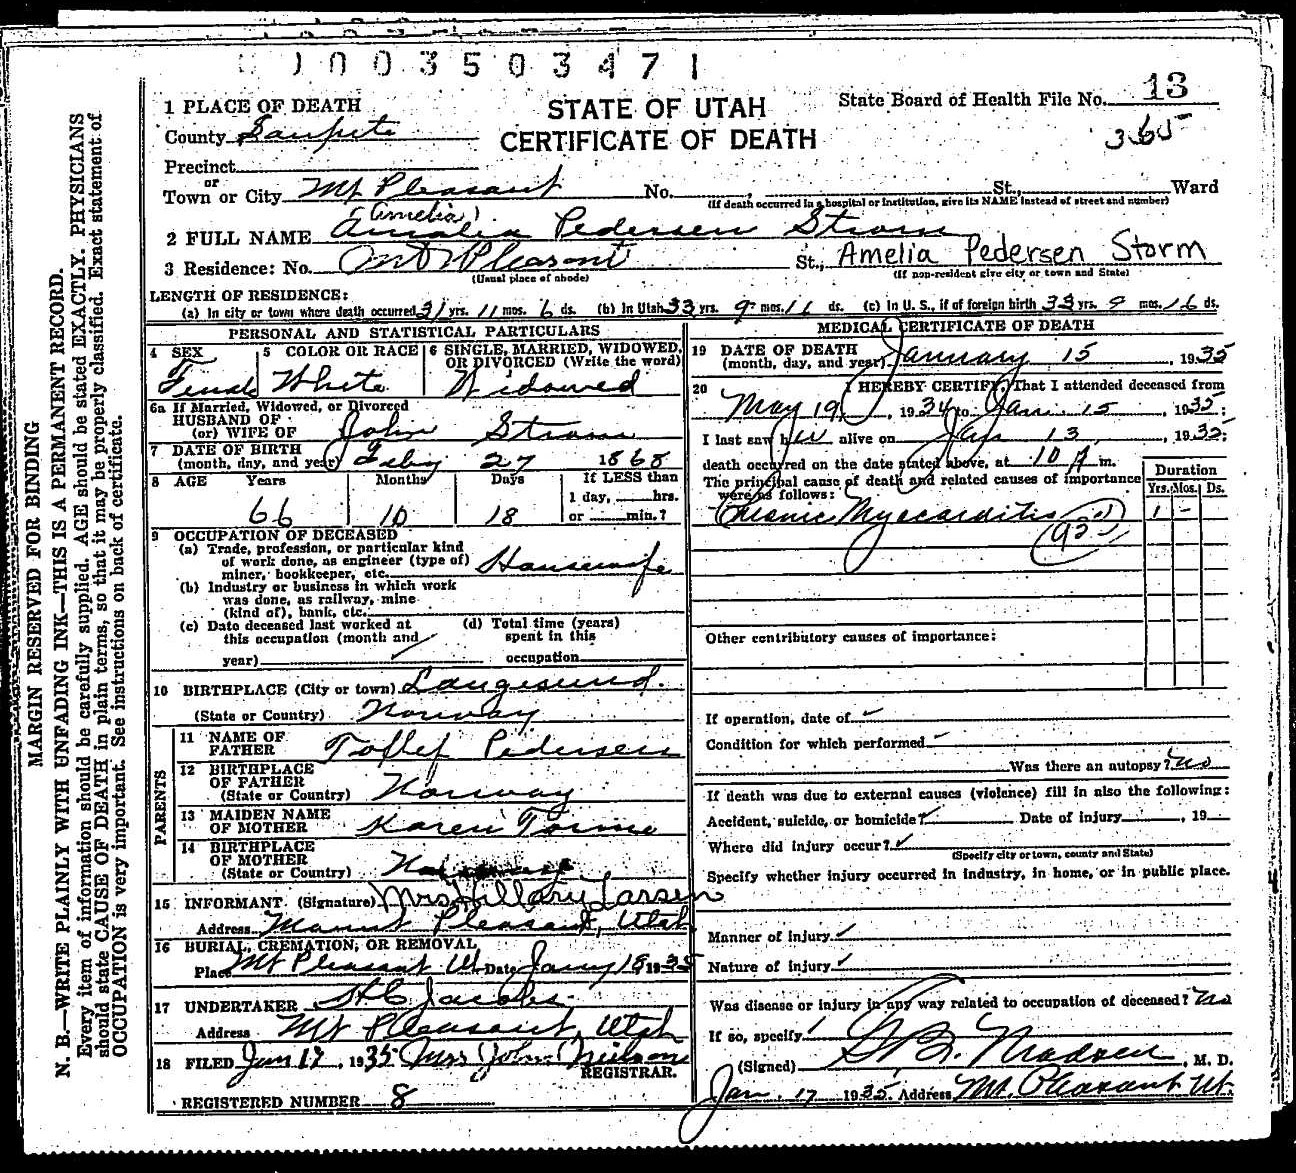 1003503471
1 PLACE OF DEATH
STATE OF UTAH
CERTIFICATE OF DEATH
State Board of Health File No. 13
365
County Sanpete
Precinct
or
Town or City Mt Pleasant No. , St., Ward
(If death occurred in a hospital or institution, give its NAME instead of street and number)
(Amelia)
2 FULL NAME Amalia Pedersen Strom
3 Residence: No. Mt Pleasant St., Amelia Pedersen Storm
(Usual place of abode) (If non-resident give city or town and State)
LENGTH OF RESIDENCE:
(a) In city or town where death occurred 31 yrs. 11 mos. 6 ds. (b) In Utah 33 yrs. 9 mos. 16 ds. (c) In U. S., if of foreign birth 33 yrs. 9 mos. 16 ds.
PERSONAL AND STATISTICAL PARTICULARS
4 SEX Female
5 COLOR OR RACE White
6 SINGLE, MARRIED, WIDOWED, OR DIVORCED (Write the word) Widowed
6a If Married, Widowed, or Divorced
HUSBAND OF
(or) WIFE OF John Strom
7 DATE OF BIRTH
(month, day, and year) Feby 27 1868
8 AGE Years 66 Months 10 Days 18
If LESS than
1 day, hrs.
or min.?
9 OCCUPATION OF DECEASED
(a) Trade, profession, or particular kind
of work done, as engineer (type of)
miner, bookkeeper, etc. Housewife
(b) Industry or business in which work
was done, as railway, mine
(kind of), bank, etc.
(c) Date deceased last worked at
this occupation (month and
year)
(d) Total time (years)
spent in this
occupation
10 BIRTHPLACE (City or town) Langesund.
(State or Country) Norway
PARENTS
11 NAME OF
FATHER Tollef Pedersen
12 BIRTHPLACE
OF FATHER
(State or Country) Norway
13 MAIDEN NAME
OF MOTHER Karen
14 BIRTHPLACE
OF MOTHER
(State or Country)
15 INFORMANT (Signature) Mrs Hillary Larsen
Address Mount Pleasant, Utah
16 BURIAL, CREMATION, OR REMOVAL
Place Mt Pleasant Ut Date Jany 18 1935
17 UNDERTAKER Jacobs
Address Mt Pleasant, Utah
18 FILED Jan 17, 1935 Mrs John Neilson
REGISTRAR.
REGISTERED NUMBER 8
MEDICAL CERTIFICATE OF DEATH
19 DATE OF DEATH
(month, day, and year) January 15, 1935
20 I HEREBY CERTIFY, That I attended deceased from
May 19, 1934 to Jan. 15, 1935;
I last saw her alive on Jan 13, 1935;
death occurred on the date stated above, at 10 A m.
The principal cause of death and related causes of importance
were as follows:
Duration
Yrs. Mos. Ds.
Chronic Myocarditis 1 -
Other contributory causes of importance:
If operation, date of
Condition for which performed
Was there an autopsy? no
If death was due to external causes (violence) fill in also the following:
Accident, suicide, or homicide? Date of injury , 19
Where did injury occur?
(Specify city or town, county and State)
Specify whether injury occurred in industry, in home, or in public place.
Manner of injury
Nature of injury
Was disease or injury in any way related to occupation of deceased? no
If so, specify
(Signed) Madsen, M. D.
Jan. 17 1935 Address Mt. Pleasant Ut.
MARGIN RESERVED FOR BINDING
N. B.—WRITE PLAINLY WITH UNFADING INK—THIS IS A PERMANENT RECORD.
Every item of information should be carefully supplied. AGE should be stated EXACTLY. PHYSICIANS
should state CAUSE OF DEATH in plain terms, so that it may be properly classified. Exact statement of
OCCUPATION is very important. See instructions on back of certificate.